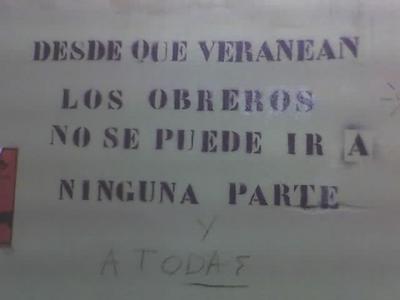 DESDE QUE VERANEAN
LOS OBREROS
NO SE PUEDE IR A
NINGUNA PARTE
Y
A TODAS